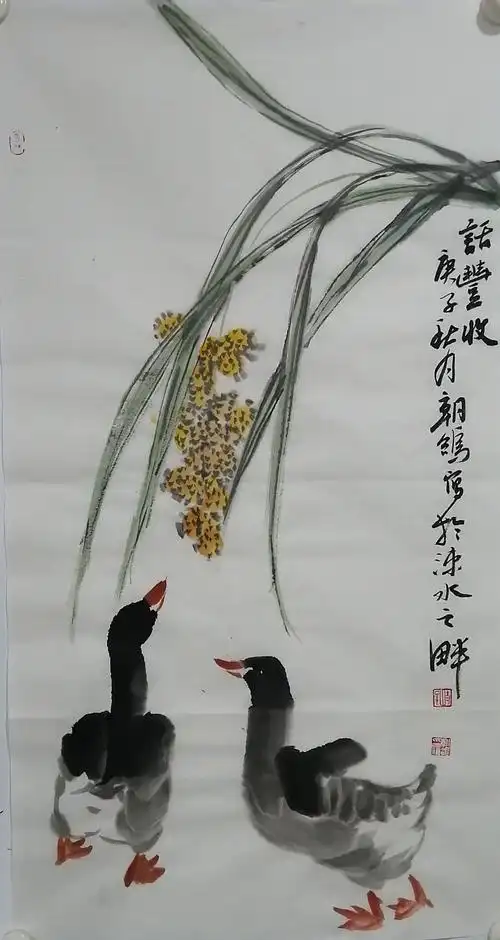 話豐收
庚子秋月朝鴿寫於涑水之畔